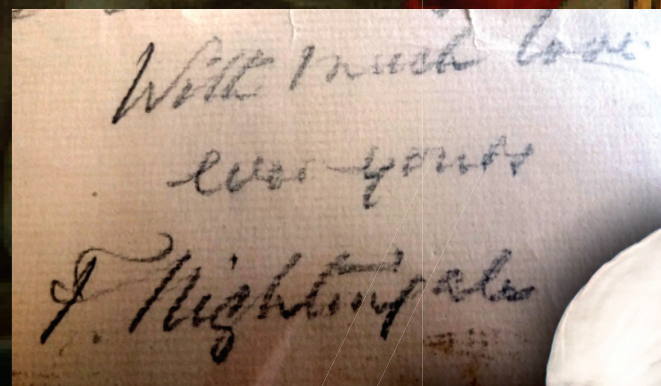 With much love
ever yours
F. Nightingale